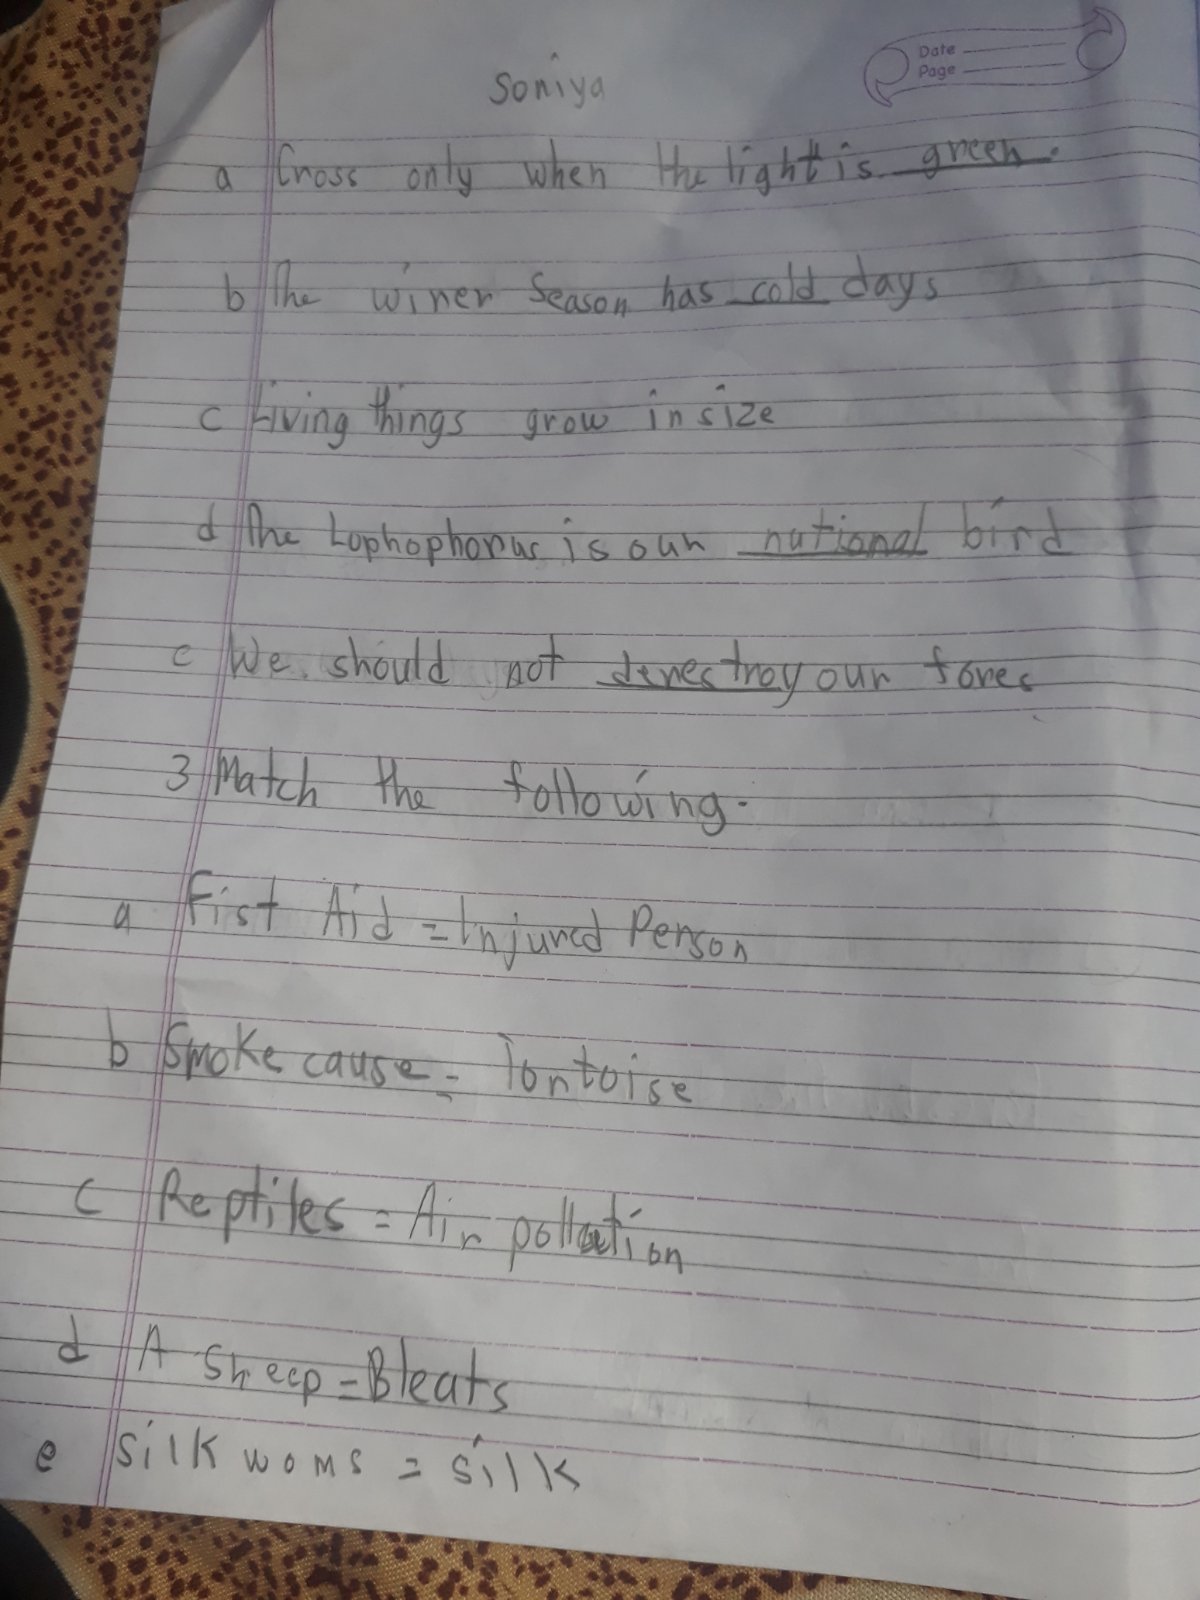 Date
Page
Soniya
a Cross only when the light is green.
b The winer Season has cold days
c Living things grow in size
d The Lophophorus is our national bird
e We should not derestroy our fores
3 Match the following.
a Fist Aid = Injured Person
b Smoke cause = Tortoise
c Reptiles = Air pollution
d A Sheep = Bleats
e silk woms = silk